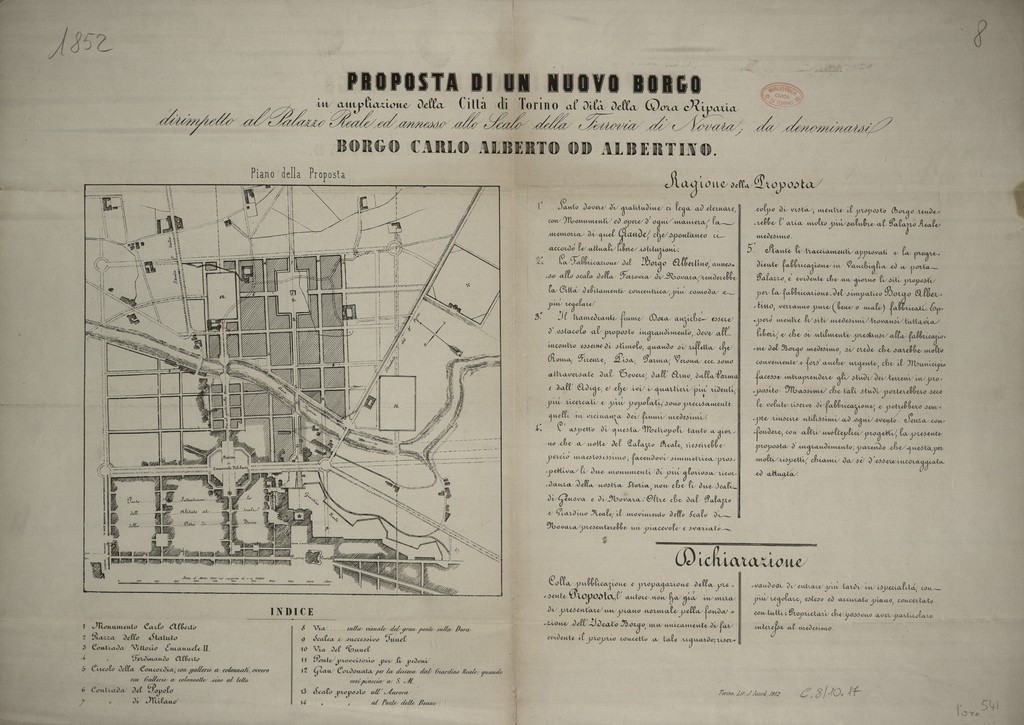 1852
8
PROPOSTA DI UN NUOVO BORGO
in ampliazione della Città di Torino al dilà della Dora Riparia
dirimpetto al Palazzo Reale ed annesso allo Scalo della Ferrovia di Novara, da denominarsi
BORGO CARLO ALBERTO OD ALBERTINO.
Piano della Proposta
INDICE
1 Monumento Carlo Alberto
2 Piazza dello Statuto
3 Contrada Vittorio Emanuele II.
4 „ Ferdinando Alberto
5 Circolo della Concordia, con gallerie a colonnati, ovvero
con Gallerie a colonnette sino al tetto
6 Contrada del Popolo
7 „ di Milano
8 Via sulla visuale del gran ponte sulla Dora
9 Scalea e successivo Tunel
10 Via del Tunnel
11 Ponte provvisorio per li pedoni
12 Gran Cordonata per la discesa dal Giardino Reale, quando
così piaccia a S. M.
13 Scalo proposto all'Aurora
14 „ „ al Ponte delle Benne
Ragione della Proposta
1.° Santo dovere di gratitudine ci lega ad eternare,
con Monumenti ed opere d'ogni maniera, la
memoria di quel Grande, che spontaneo ci
accordò le attuali libere istituzioni.
2.° La Fabbricazione del Borgo Albertino, annes-
so allo scalo della Ferrovia di Novara, renderebbe
la Città debitamente concentrica, più comoda e
più regolare.
3.° Il tramediante fiume Dora anziché essere
d'ostacolo al proposto ingrandimento, deve all'
incontro esserne di stimolo, quando si rifletta che
Roma, Firenze, Pisa, Parma, Verona ecc. sono
attraversate dal Tevere, dall'Arno, dalla Parma
e dall'Adige, e che ivi i quartieri più ridenti,
più ricercati e più popolati, sono precisamente
quelli in vicinanza dei fiumi medesimi.
4.° L'aspetto di questa Metropoli tanto a gior-
no che a notte del Palazzo Reale, riescirebbe
perciò maestosissimo, facendovi simmetrica pros-
pettiva li due monumenti di più gloriosa ricor-
danza della nostra Storia, non che li due Scali
di Genova e di Novara. Oltre che dal Palazzo
e Giardino Reale, il movimento dello Scalo di
Novara presenterebbe un piacevole e svariato
colpo di vista; mentre il proposto Borgo rende-
rebbe l'aria molto più salubre al Palazzo Reale
medesimo.
5.° Stante li tracciamenti approvati e la progre-
diente fabbricazione in Vanchiglia ed a porta
Palazzo, è evidente che un giorno li siti proposti
per la fabbricazione del simpatico Borgo Alber-
tino, verranno pure (bene o male) fabbricati. Ep-
però mentre li siti medesimi trovansi tuttavia
liberi, e che sì utilmente prestansi alla fabbricazio-
ne del Borgo medesimo, si crede che sarebbe molto
conveniente e fors'anche urgente, che il Municipio
facesse intraprendere gli studi dei terreni in pro-
posito. Massime che tali studi porterebbero seco
le volute riserve di fabbricazione, e potrebbero sem-
pre riuscire utilissimi ad ogni evento. Senza con-
fondere, con altri molteplici progetti, la presente
proposta d'ingrandimento; parendo che questa, per
molti rispetti, chiami da sé d'essere incoraggiata
ed attuata.
Dichiarazione
Colla pubblicazione e propagazione della pre-
sente Proposta, l'autore non ha già in mira
di presentare un piano normale pella fonda-
zione dell'Ideato Borgo, ma unicamente di far
evidente il proprio concetto a tale riguardo, riser-
vandosi di entrare più tardi in ispecialità, con
più regolare, esteso ed accurato piano, concertato
con tutti i Proprietari che possono aver particolare
interesse al medesimo.
Torino, Lit. 1852
C. 8/10. 17
541